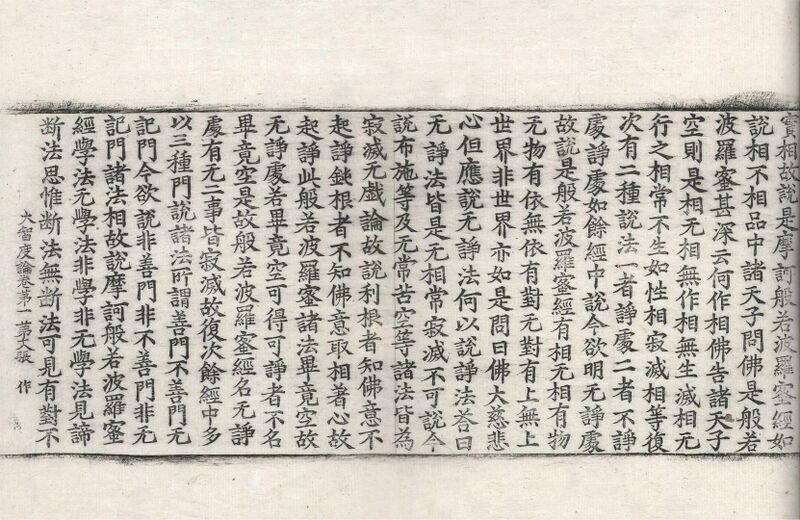 實相故說是摩訶般若波羅蜜經如
說相不相品中諸天子問佛是般若
波羅蜜甚深云何作相佛告諸天子
空則是相无相無作相無生滅相无
行之相常不生如性相寂滅相等復
次有二種說法一者諍處二者不諍
處諍處如餘經中說今欲明无諍處
故說是般若波羅蜜經有相无相有物
无物有依無依有對无對有上無上
世界非世界亦如是問曰佛大慈悲
心但應說无諍法何以說諍法荅曰
无諍法皆是无相常寂滅不可說今
說布施等及无常苦空等諸法皆為
寂滅无戲論故說利根者知佛意不
起諍鈍根者不知佛意取相著心故
起諍此般若波羅蜜諸法畢竟空故
无諍處若畢竟空可得可諍者不名
畢竟空是故般若波羅蜜經名无諍
處有无二事皆寂滅故復次餘經中多
以三種門說諸法所謂善門不善門无
記門今欲說非善門非不善門非无
記門諸法相故說摩訶般若波羅蜜
經學法无學法非學非无學法見諦
断法思惟断法無断法可見有對不
大智度論卷第一 張 作